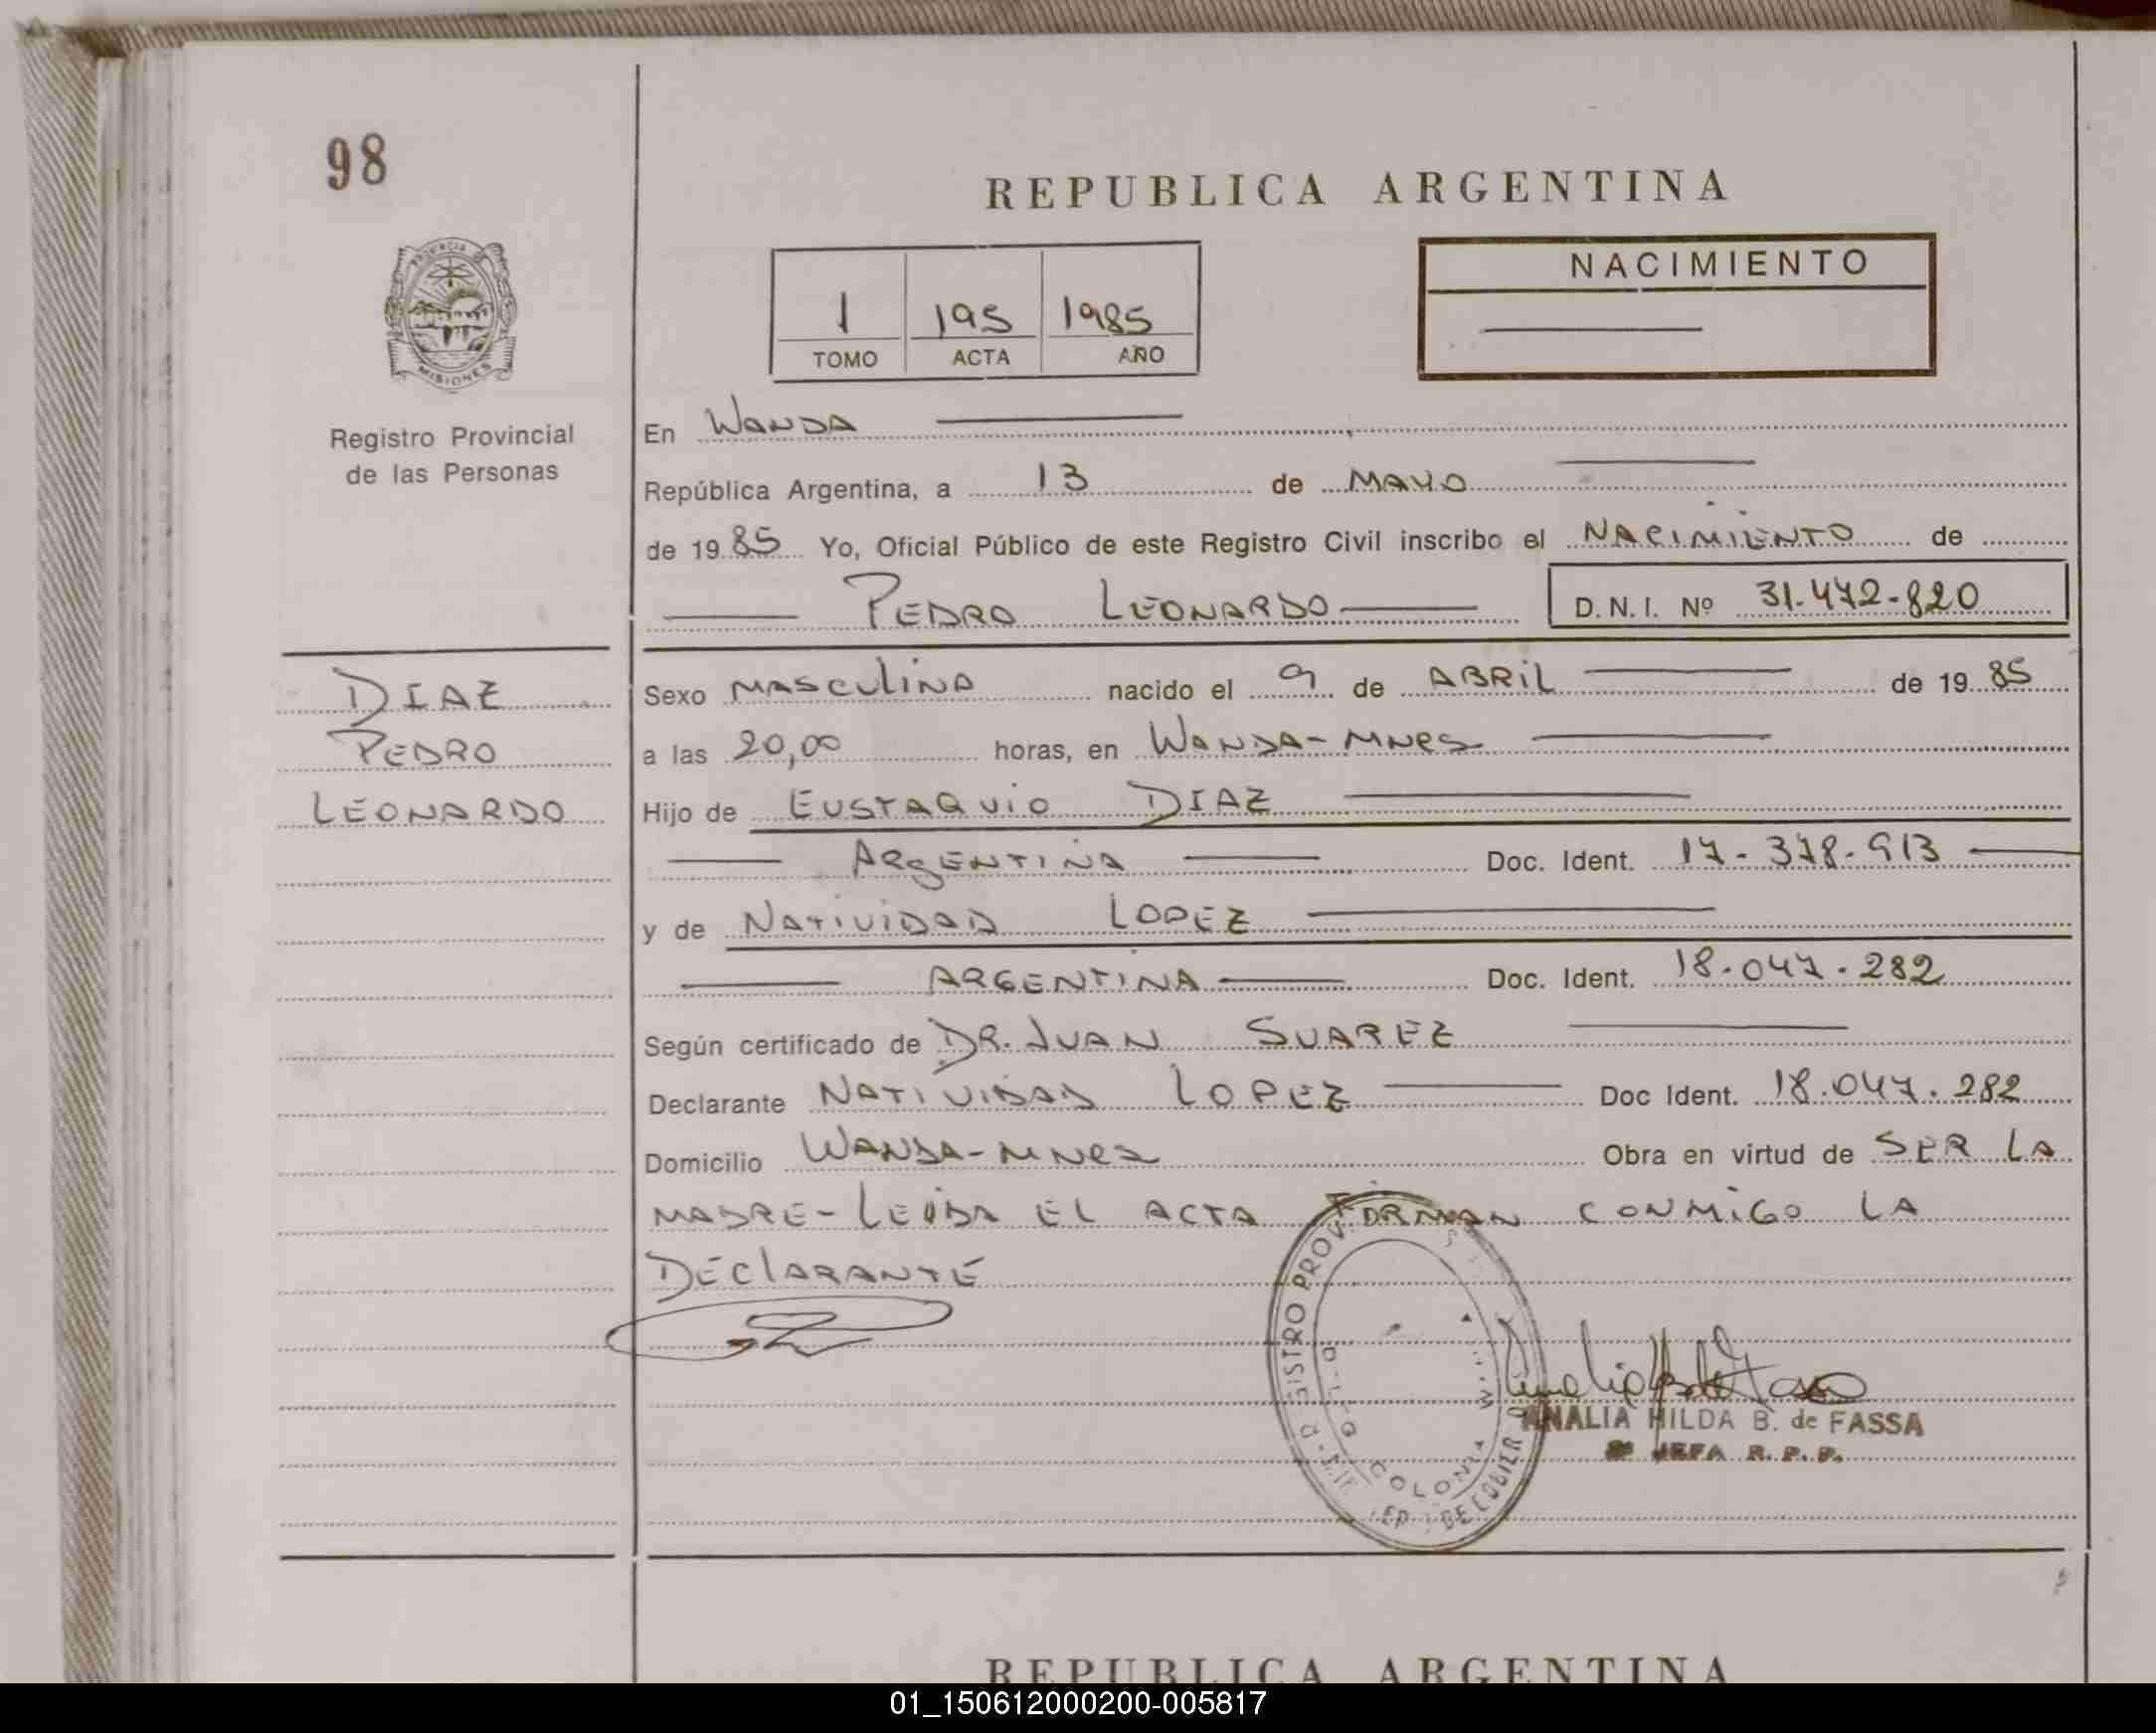 98
REPUBLICA ARGENTINA
PROVINCIA
MISIONES
Registro Provincial
de las Personas
1 195 1985
TOMO ACTA AÑO
NACIMIENTO
En WANDA
República Argentina, a 13 de MAYO
de 19 85 Yo, Oficial Público de este Registro Civil inscribo el NACIMIENTO de
PEDRO LEONARDO D.N.I. Nº 31.472.820
DIAZ
PEDRO
LEONARDO
Sexo MASCULINO nacido el 9 de ABRIL de 19 85
a las 20,00 horas, en WANDA-MNES
Hijo de EUSTAQUIO DIAZ
ARGENTINA Doc. Ident. 17-378-913
y de NATIVIDAD LOPEZ
ARGENTINA Doc. Ident. 18.047.282
Según certificado de DR. JUAN SUAREZ
Declarante NATIVIDAD LOPEZ Doc Ident. 18.047.282
Domicilio WANDA-MNES Obra en virtud de SER LA
MADRE-LEIDA EL ACTA FIRMAN CONMIGO LA
DECLARANTE
ISTRO PROV.
COLONIA
ANALIA HILDA B. de FASSA
JEFA R. P. P.
REPUBLICA ARGENTINA
01_150612000200-005817